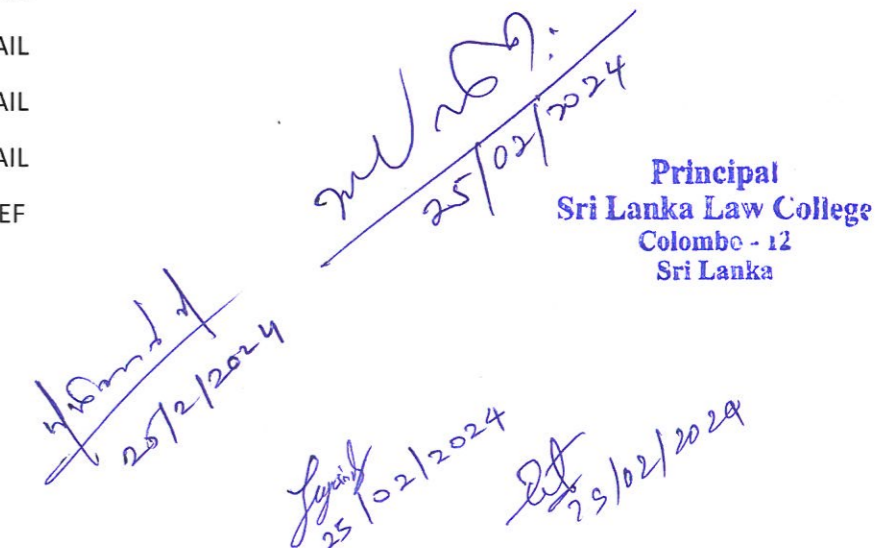 AIL
AIL
AIL
EF
25/02/2024
Principal
Sri Lanka Law College
Colombo - 12
Sri Lanka
25/2/2024
25/02/2024
25/02/2024